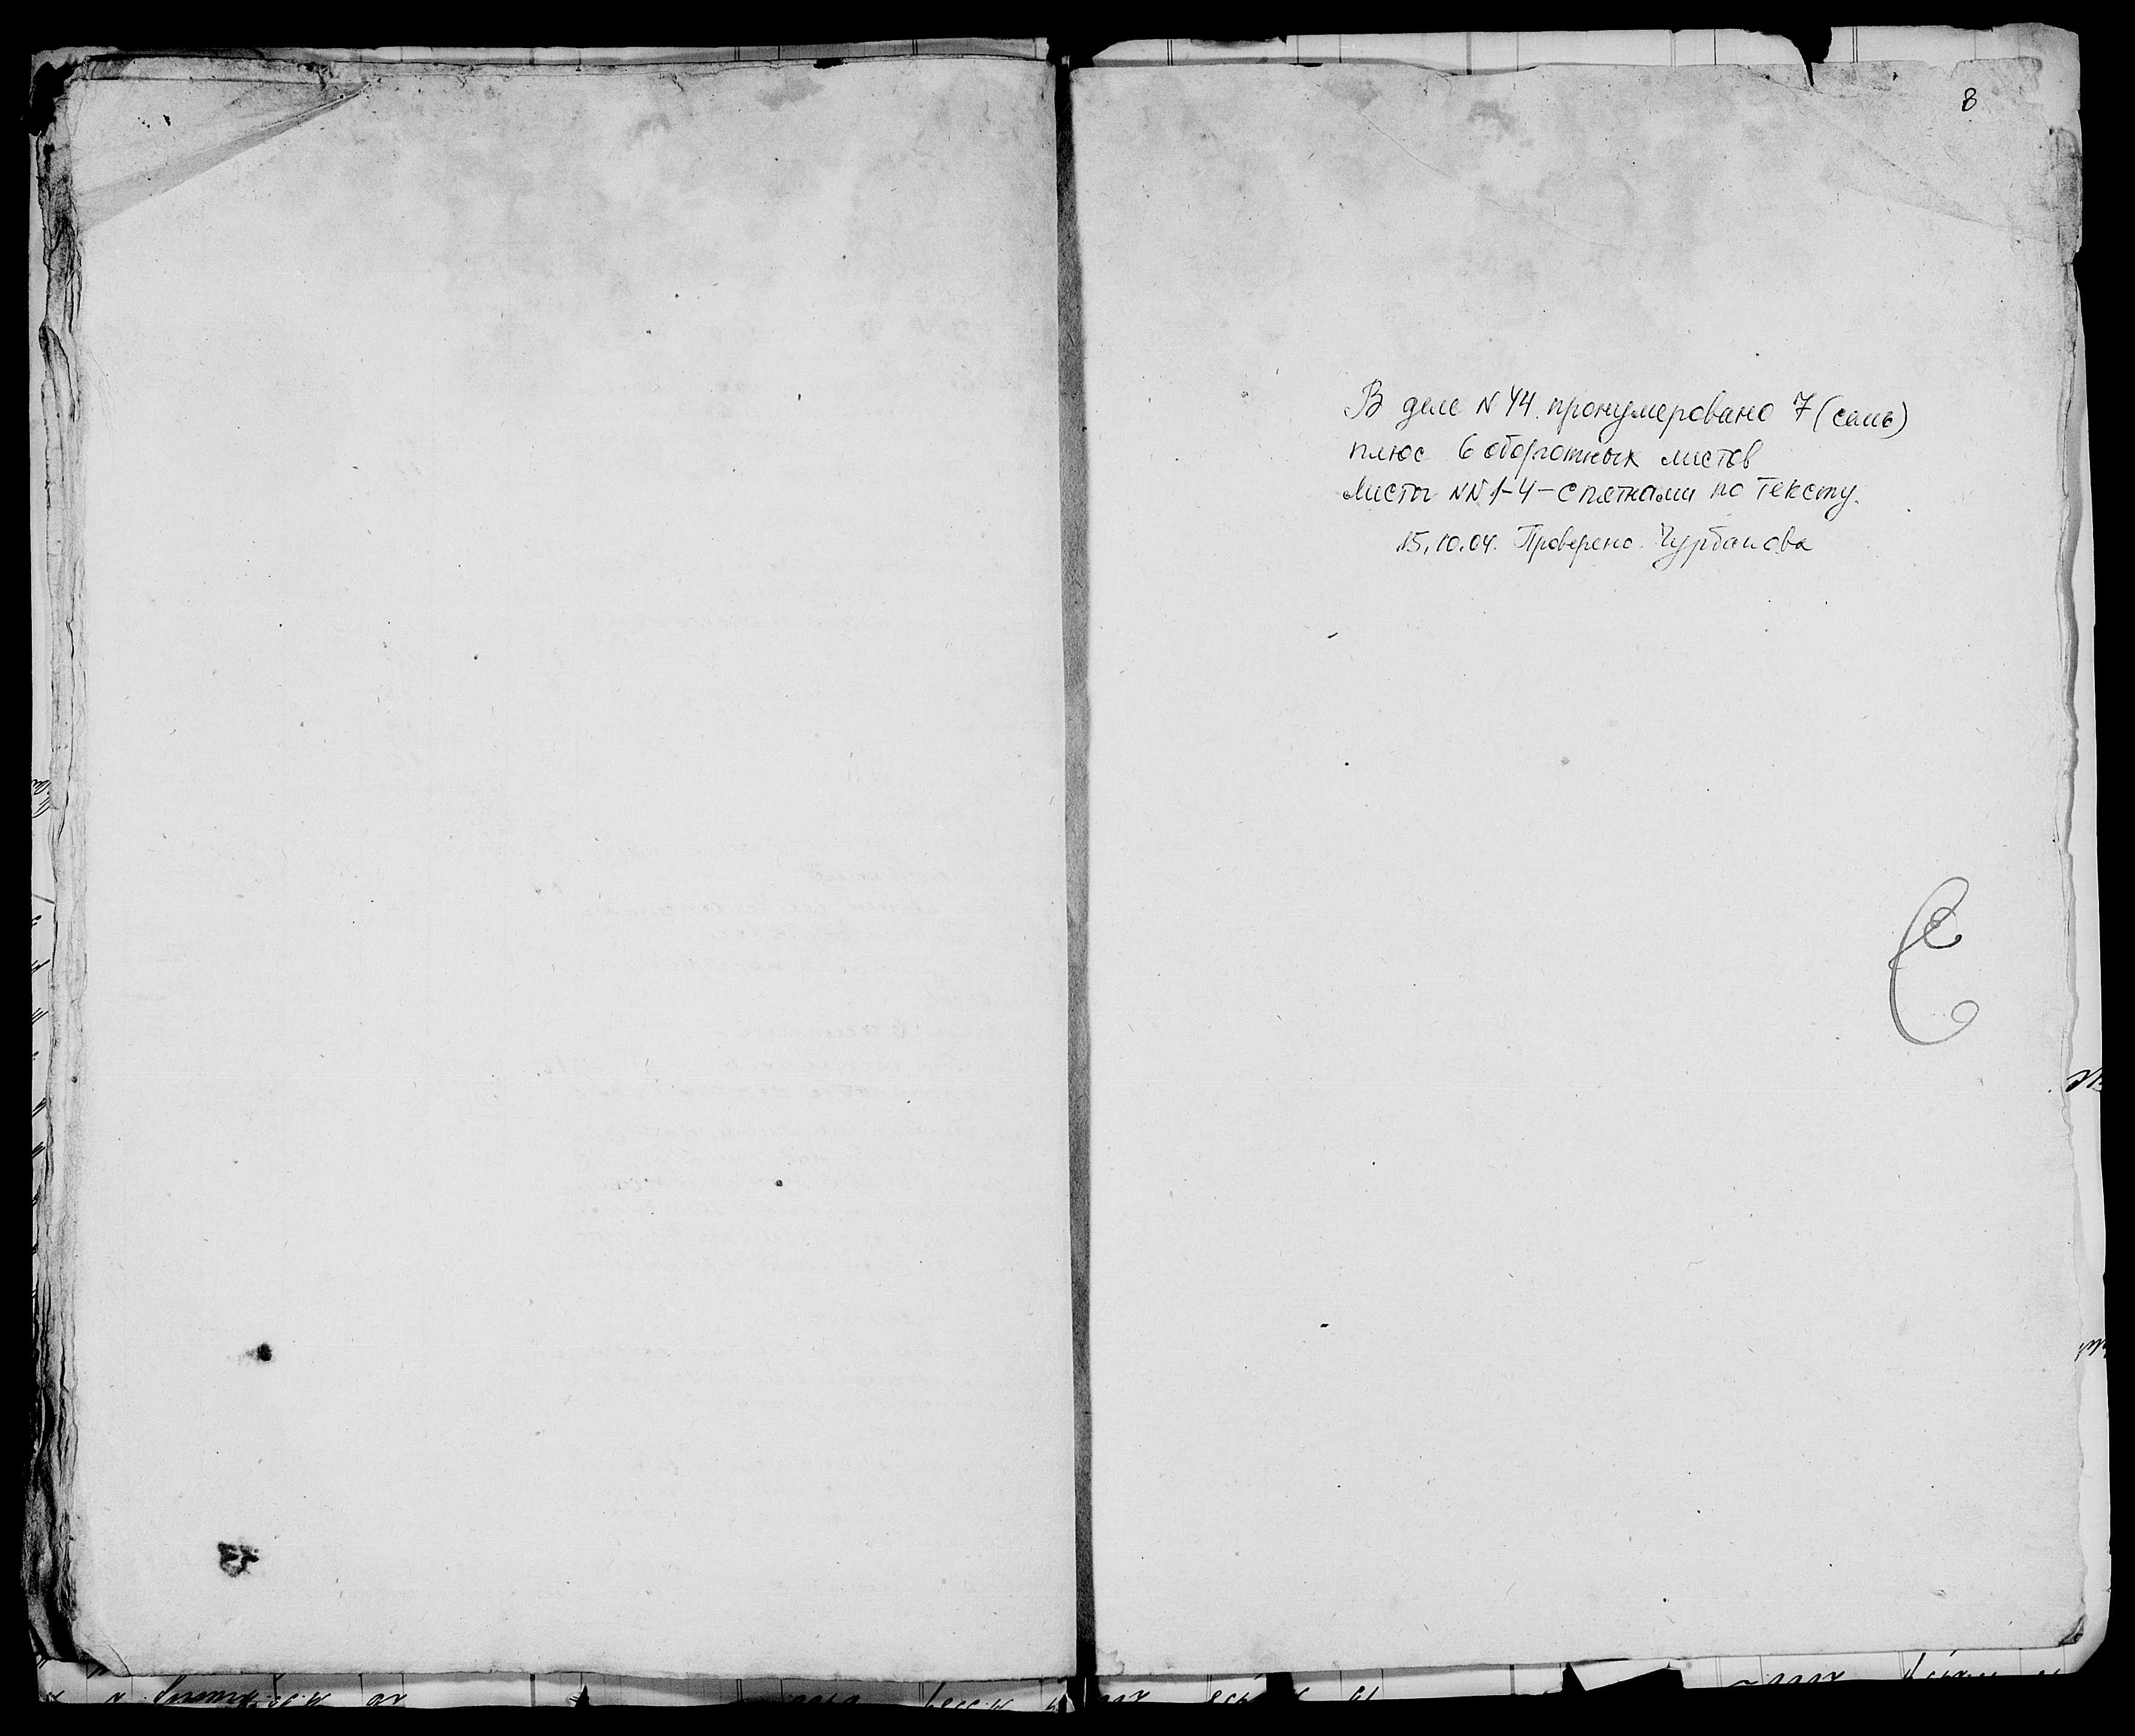 8
В деле N 44. пронумеровано 7 (семь)
плюс 6 оборотных листов
Листы NN 1-4 - с пятнами по тексту.
15.10.04. Проверено. Чурбанова